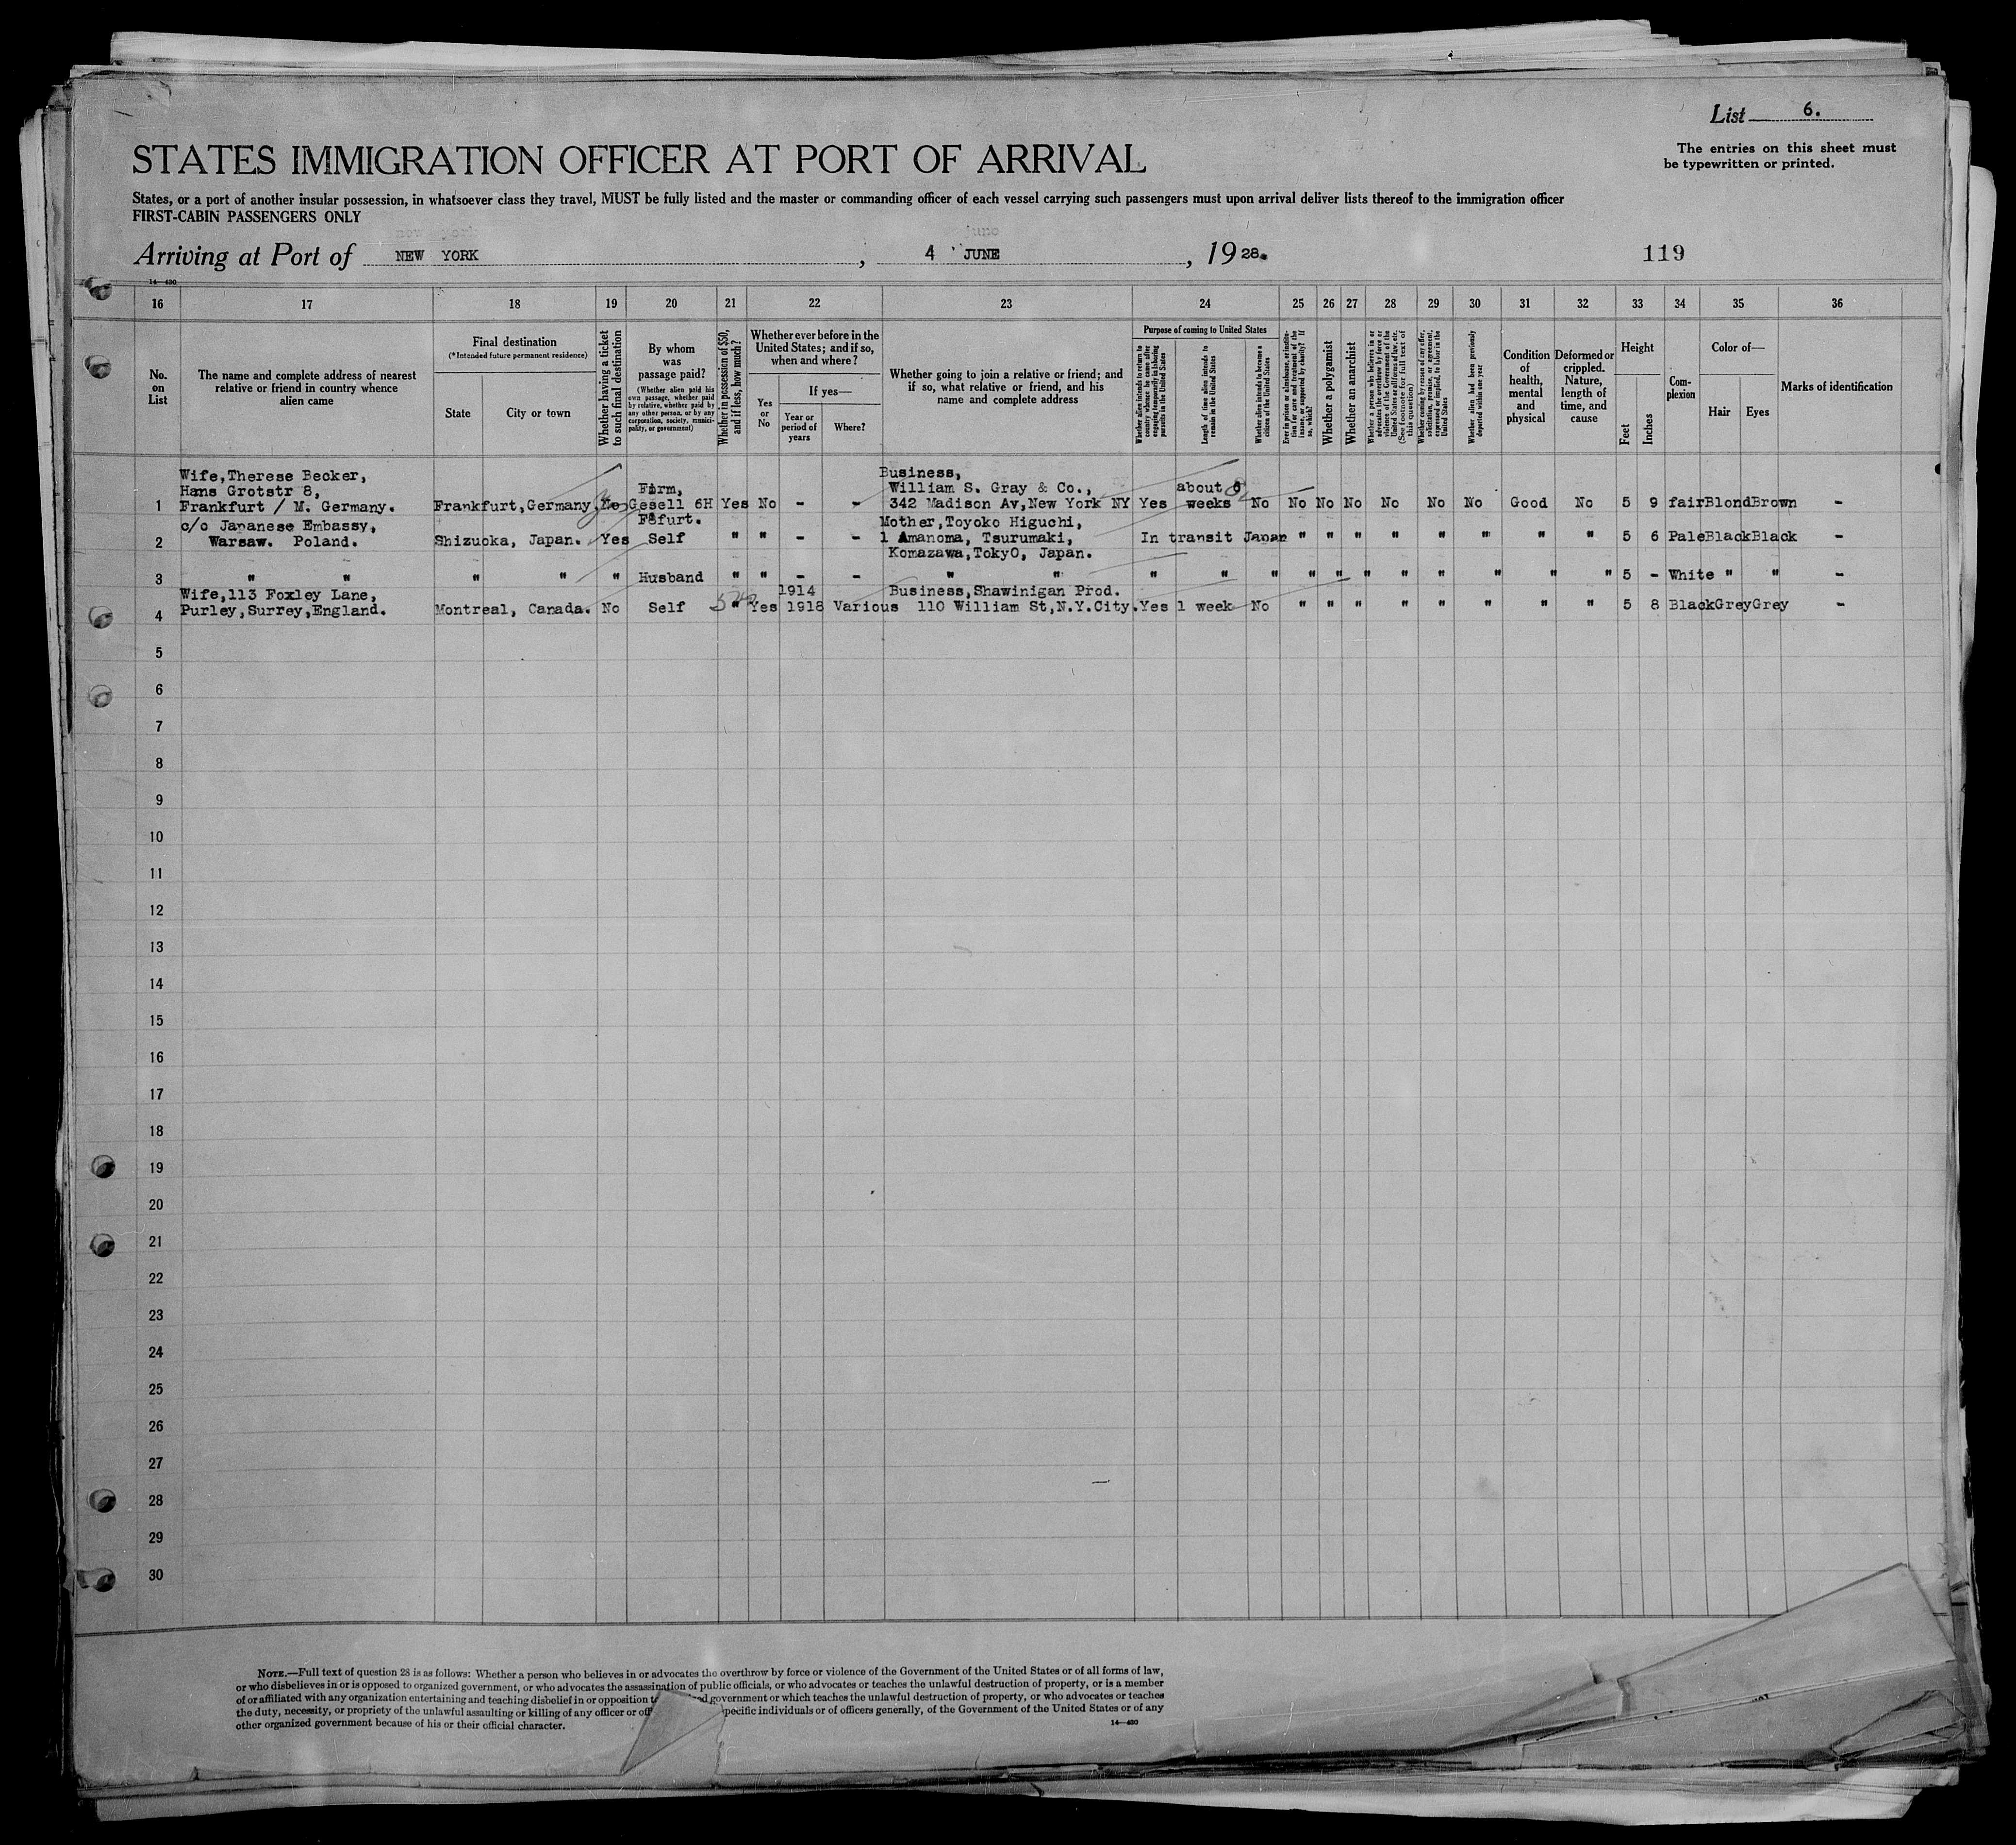 List 6.
STATES IMMIGRATION OFFICER AT PORT OF ARRIVAL
The entries on this sheet must
be typewritten or printed.
States, or a port of another insular possession, in whatsoever class they travel, MUST be fully listed and the master or commanding officer of each vessel carrying such passengers must upon arrival deliver lists thereof to the immigration officer
FIRST-CABIN PASSENGERS ONLY
Arriving at Port of NEW YORK, 4 JUNE, 1928.
119
14—430
16 17 18 19 20 21 22 23 24 25 26 27 28 29 30 31 32 33 34 35 36
No.
on
List
The name and complete address of nearest
relative or friend in country whence
alien came
Final destination
(*Intended future permanent residence)
State
City or town
Whether having a ticket
to such final destination
By whom
was
passage paid?
(Whether alien paid his
own passage, whether paid
by relative, whether paid by
any other person, or by any
corporation, society, munici-
pality, or government)
Whether in possession of $50,
and if less, how much?
Whether ever before in the
United States; and if so,
when and where?
Yes
or
No
If yes—
Year or
period of
years
Where?
Whether going to join a relative or friend; and
if so, what relative or friend, and his
name and complete address
Purpose of coming to United States
Whether alien intends to return to
country whence he came after
engaging temporarily in laboring
pursuits in the United States
Length of time alien intends to
remain in the United States
Whether alien intends to become a
citizen of the United States
Ever in prison or almshouse, or institu-
tion for care and treatment of the
insane, or supported by charity? If
so, which?
Whether a polygamist
Whether an anarchist
Whether a person who believes in or
advocates the overthrow by force or
violence of the Government of the
United States or all forms of law, etc.
(See footnote for full text of
this question)
Whether coming by reason of any offer,
solicitation, promise, or agreement,
expressed or implied, to labor in the
United States
Whether alien had been previously
deported within one year
Condition
of
health,
mental
and
physical
Deformed or
crippled.
Nature,
length of
time, and
cause
Height
Feet
Inches
Com-
plexion
Color of—
Hair
Eyes
Marks of identification
Wife,Therese Becker,
Hans Grotstr 8,
Firm,
Business,
William S. Gray & Co.,
about 6
1 Frankfurt / M. Germany. Frankfurt,Germany. Gesell 6H Yes No - - 342 Madison Av,New York NY Yes weeks No No No No No No No Good No 5 9 fair Blond Brown -
c/o Japanese Embassy,
Mother,Toyoko Higuchi,
2 Warsaw. Poland. Shizuoka, Japan. Yes Self " " - - 1 Amanoma, Tsurumaki, In transit Japan " " " " " " " " 5 6 Pale Black Black -
Komazawa,TokyO, Japan.
3 " " " " " Husband " " - - " " " " " " " " " " " " " 5 - White " " -
Wife,113 Foxley Lane,
1914
Business,Shawinigan Prod.
4 Purley,Surrey,England. Montreal, Canada. No Self " Yes 1918 Various 110 William St,N.Y.City. Yes 1 week No " " " " " " " " 5 8 Black Grey Grey -
5
6
7
8
9
10
11
12
13
14
15
16
17
18
19
20
21
22
23
24
25
26
27
28
29
30
NOTE.—Full text of question 28 is as follows: Whether a person who believes in or advocates the overthrow by force or violence of the Government of the United States or of all forms of law,
or who disbelieves in or is opposed to organized government, or who advocates the assassination of public officials, or who advocates or teaches the unlawful destruction of property, or is a member
of or affiliated with any organization entertaining and teaching disbelief in or opposition to government or which teaches the unlawful destruction of property, or who advocates or teaches
the duty, necessity, or propriety of the unlawful assaulting or killing of any officer or specific individuals or of officers generally, of the Government of the United States or of any
other organized government because of his or their official character.
14—430